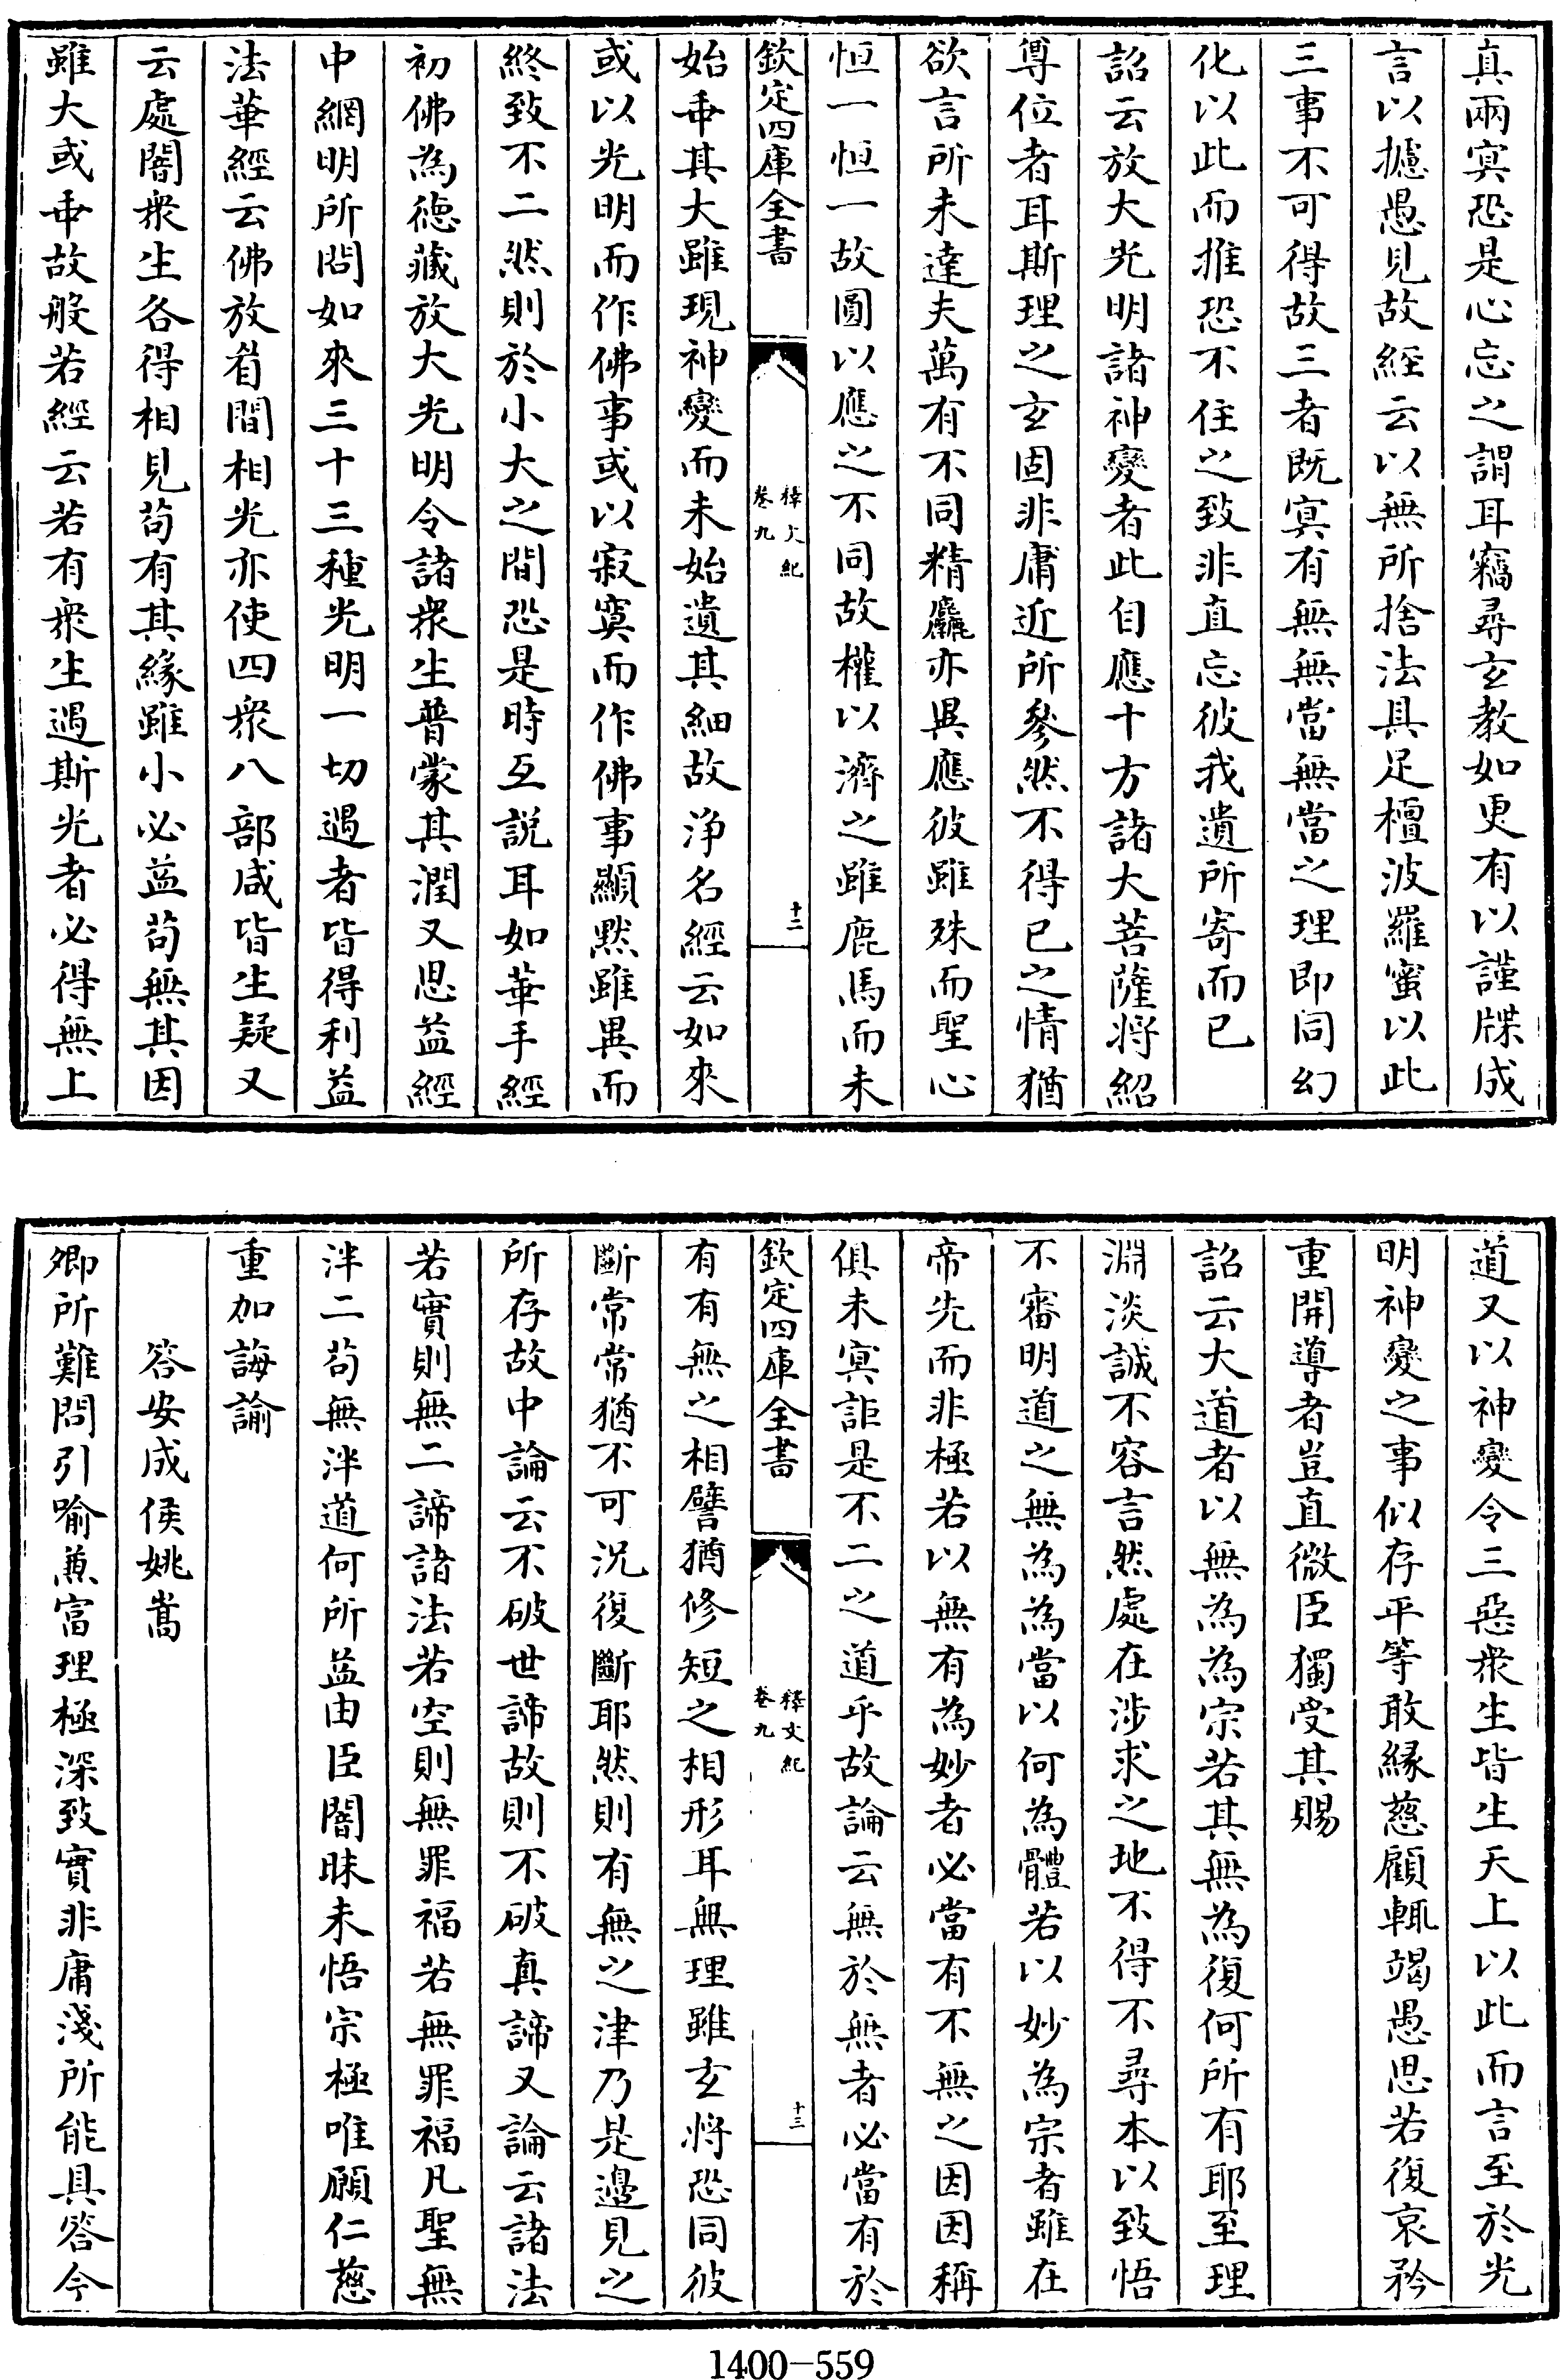 真兩冥恐是心忘之謂耳竊尋玄教如更有以謹牒成
言以攄愚見故經云以無所捨法具足檀波羅蜜以此
三事不可得故三者既冥有無無當無當之理即同幻
化以此而推恐不住之致非直忘彼我遺所寄而已
詔云放大光明諸神變者此自應十方諸大菩薩將紹
尊位者耳斯理之玄固非庸近所參然不得已之情猶
欲言所未達夫萬有不同精麤亦異應彼雖殊而聖心
恒一恒一故圓以應之不同故權以濟之雖鹿馬而未
欽定四庫全書
釋文紀
卷九
十二
始乖其大雖現神變而未始遺其細故淨名經云如來
或以光明而作佛事或以寂寞而作佛事顯黙雖異而
終致不二然則於小大之間恐是時互說耳如華手經
初佛為德藏放大光明令諸衆生普蒙其潤又思益經
中網明所問如來三十三種光明一切遇者皆得利益
法華經云佛放眉間相光亦使四衆八部咸皆生疑又
云處闇衆生各得相見茍有其緣雖小必益茍無其因
雖大或乖故般若經云若有衆生遇斯光者必得無上
道又以神變令三惡衆生皆生天上以此而言至於光
明神變之事似存平等敢緣慈顧輒竭愚思若復哀矜
重開導者豈直微臣獨受其賜
詔云大道者以無為為宗若其無為復何所有耶至理
淵淡誠不容言然處在涉求之地不得不尋本以致悟
不審明道之無為為當以何為體若以妙為宗者雖在
帝先而非極若以無有為妙者必當有不無之因因稱
俱未冥詎是不二之道乎故論云無於無者必當有於
欽定四庫全書
釋文紀
卷九
十三
有有無之相譬猶修短之相形耳無理雖玄將恐同彼
斷常常猶不可況復斷耶然則有無之津乃是邊見之
所存故中論云不破世諦故則不破真諦又論云諸法
若實則無二諦諸法若空則無罪福若無罪福凡聖無
泮二茍無泮道何所益由臣闇昧未悟宗極唯願仁慈
重加誨諭
答安成侯姚嵩
卿所難問引喻兼富理極深致實非庸淺所能具答今
1400-559